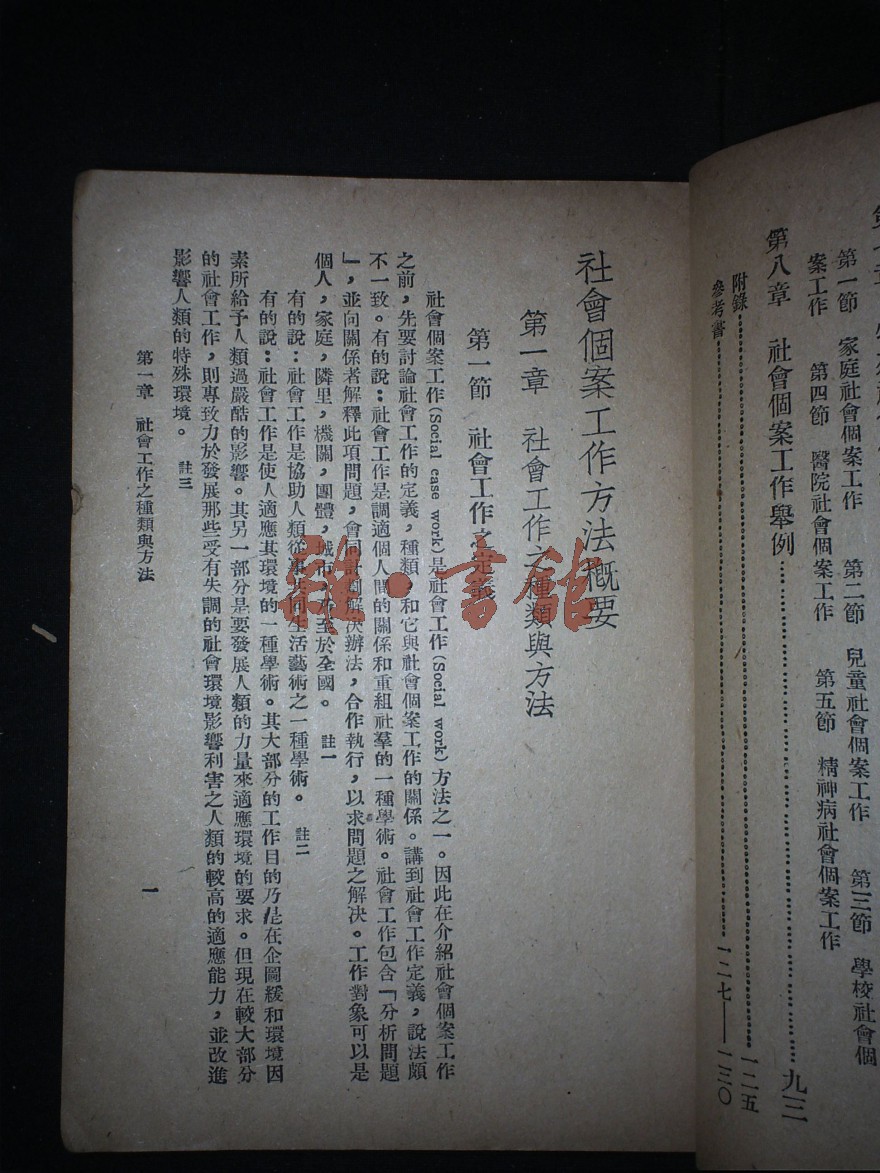 第一節　家庭社會個案工作　第二節　兒童社會個案工作　第三節　學校社會個
案工作　第四節　醫院社會個案工作　第五節　精神病社會個案工作
第八章　社會個案工作舉例……九三
附錄……一二五
參考書……一二七——一三〇
社會個案工作方法概要
第一章　社會工作之種類與方法
第一節　社會工作之定義
社會個案工作(Social case work)是社會工作(Social work)方法之一。因此在介紹社會個案工作
之前，先要討論社會工作的定義，種類，和它與社會個案工作的關係。講到社會工作定義，說法頗
不一致。有的說：社會工作是調適個人間的關係和重組社羣的一種學術。社會工作包含「分析問題
」，並向關係者解釋此項問題，會同計劃解決辦法，合作執行，以求問題之解決。工作對象可以是
個人，家庭，隣里，機關，團體，城市，乃至於全國。　註一
有的說：社會工作是協助人類從事共同生活藝術之一種學術。　註二
有的說：社會工作是使人適應其環境的一種學術。其大部分的工作目的乃是在企圖緩和環境因
素所給予人類過嚴酷的影響。其另一部分是要發展人類的力量來適應環境的要求。但現在較大部分
的社會工作，則專致力於發展那些受有失調的社會環境影響利害之人類的較高的適應能力，並改進
影響人類的特殊環境。　註三
第一章　社會工作之種類與方法
一
雅·書館